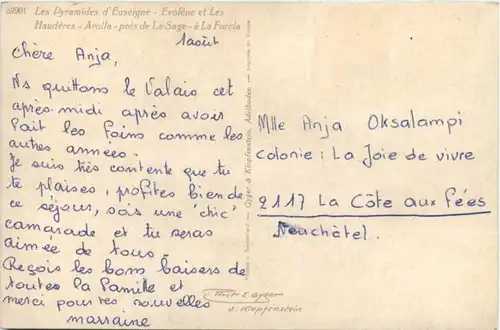 Les Pyramides d'Euseigne - Evolène et Les
Haudères - Arolla - près de La Sage - à La Forcla
1 août
Chère Anja,
Ns quittons le Valais cet
après-midi après avoir
fait les foins comme les
autres années.
Je suis très contente que tu
te plaises, profites bien de
ce séjour, sois une "chic"
camarade et tu seras
aimée de tous.
Reçois les bons baisers de
toutes la famille et
merci pour tes nouvelles
marraine
Gyger & Klopfenstein, Adelboden
Mlle Anja Oksalampi
colonie : La Joie de vivre
2117 La Côte aux Fées
Neuchâtel.
Photo E. Gyger
A. Klopfenstein